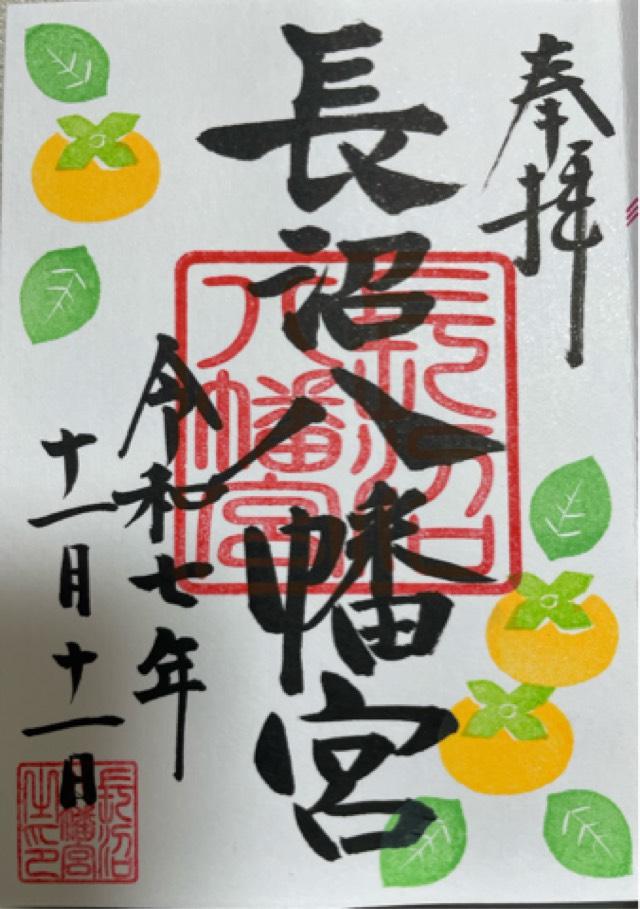 奉拝
長沼八幡宮
長沼八幡宮
令和七年
十一月十一日
長沼八幡宮之印